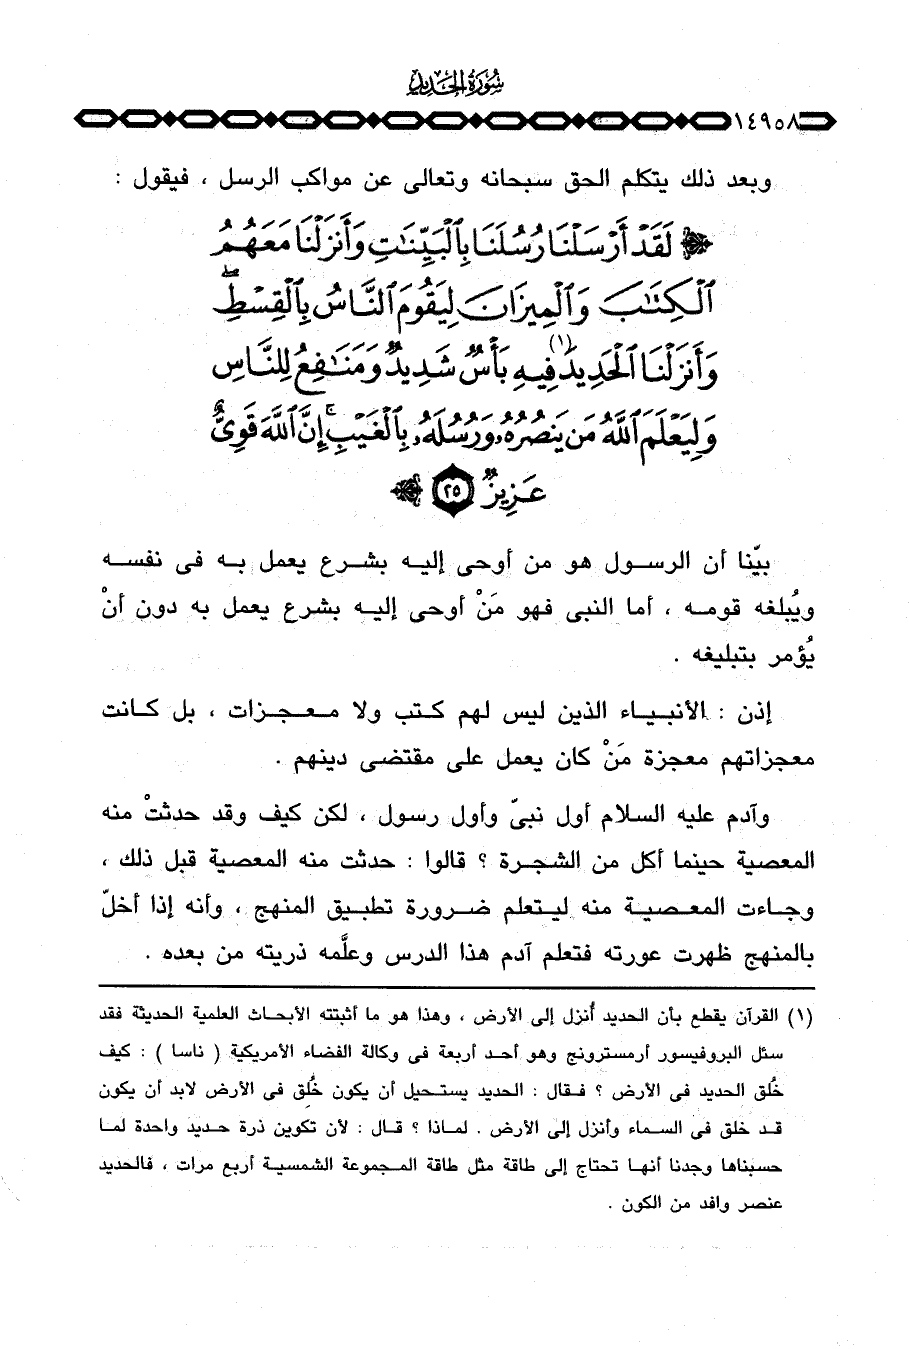 سُورَةُ الحَدِيدِ
١٤٩٥٨
وبعد ذلك يتكلم الحق سبحانه وتعالى عن مواكب الرسل ، فيقول :
لَقَدْ أَرْسَلْنَا رُسُلَنَا بِٱلْبَيِّنَٰتِ وَأَنزَلْنَا مَعَهُمُ
ٱلْكِتَٰبَ وَٱلْمِيزَانَ لِيَقُومَ ٱلنَّاسُ بِٱلْقِسْطِ ۖ
وَأَنزَلْنَا ٱلْحَدِيدَ (١) فِيهِ بَأْسٌ شَدِيدٌ وَمَنَٰفِعُ لِلنَّاسِ
وَلِيَعْلَمَ ٱللَّهُ مَن يَنصُرُهُۥ وَرُسُلَهُۥ بِٱلْغَيْبِ ۚ إِنَّ ٱللَّهَ قَوِىٌّ
عَزِيزٌ ٢٥
بيّنا أن الرسول هو من أوحى إليه بشرع يعمل به فى نفسه
ويُبلغه قومه ، أما النبى فهو مَنْ أوحى إليه بشرع يعمل به دون أنْ
يُؤمر بتبليغه .
إذن : الأنبياء الذين ليس لهم كتب ولا معجزات ، بل كانت
معجزاتهم معجزة مَنْ كان يعمل على مقتضى دينهم .
وآدم عليه السلام أول نبىّ وأول رسول ، لكن كيف وقد حدثتْ منه
المعصية حينما أكل من الشجرة ؟ قالوا : حدثت منه المعصية قبل ذلك ،
وجاءت المعصية منه ليتعلم ضرورة تطبيق المنهج ، وأنه إذا أخلّ
بالمنهج ظهرت عورته فتعلم آدم هذا الدرس وعلَّمه ذريته من بعده .
(١) القرآن يقطع بأن الحديد أُنزل إلى الأرض ، وهذا هو ما أثبتته الأبحاث العلمية الحديثة فقد
سئل البروفيسور أرمسترونج وهو أحد أربعة فى وكالة الفضاء الأمريكية ( ناسا ) : كيف
خُلق الحديد فى الأرض ؟ فقال : الحديد يستحيل أن يكون خُلق فى الأرض لابد أن يكون
قد خلق فى السماء وأنزل إلى الأرض . لماذا ؟ قال : لأن تكوين ذرة حديد واحدة لما
حسبناها وجدنا أنها تحتاج إلى طاقة مثل طاقة المجموعة الشمسية أربع مرات ، فالحديد
عنصر وافد من الكون .